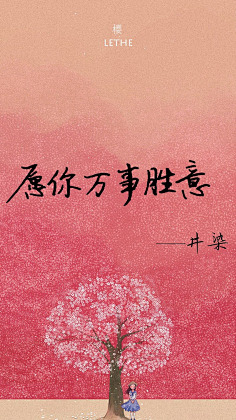 模
LETHE
愿你万事胜意
——井染